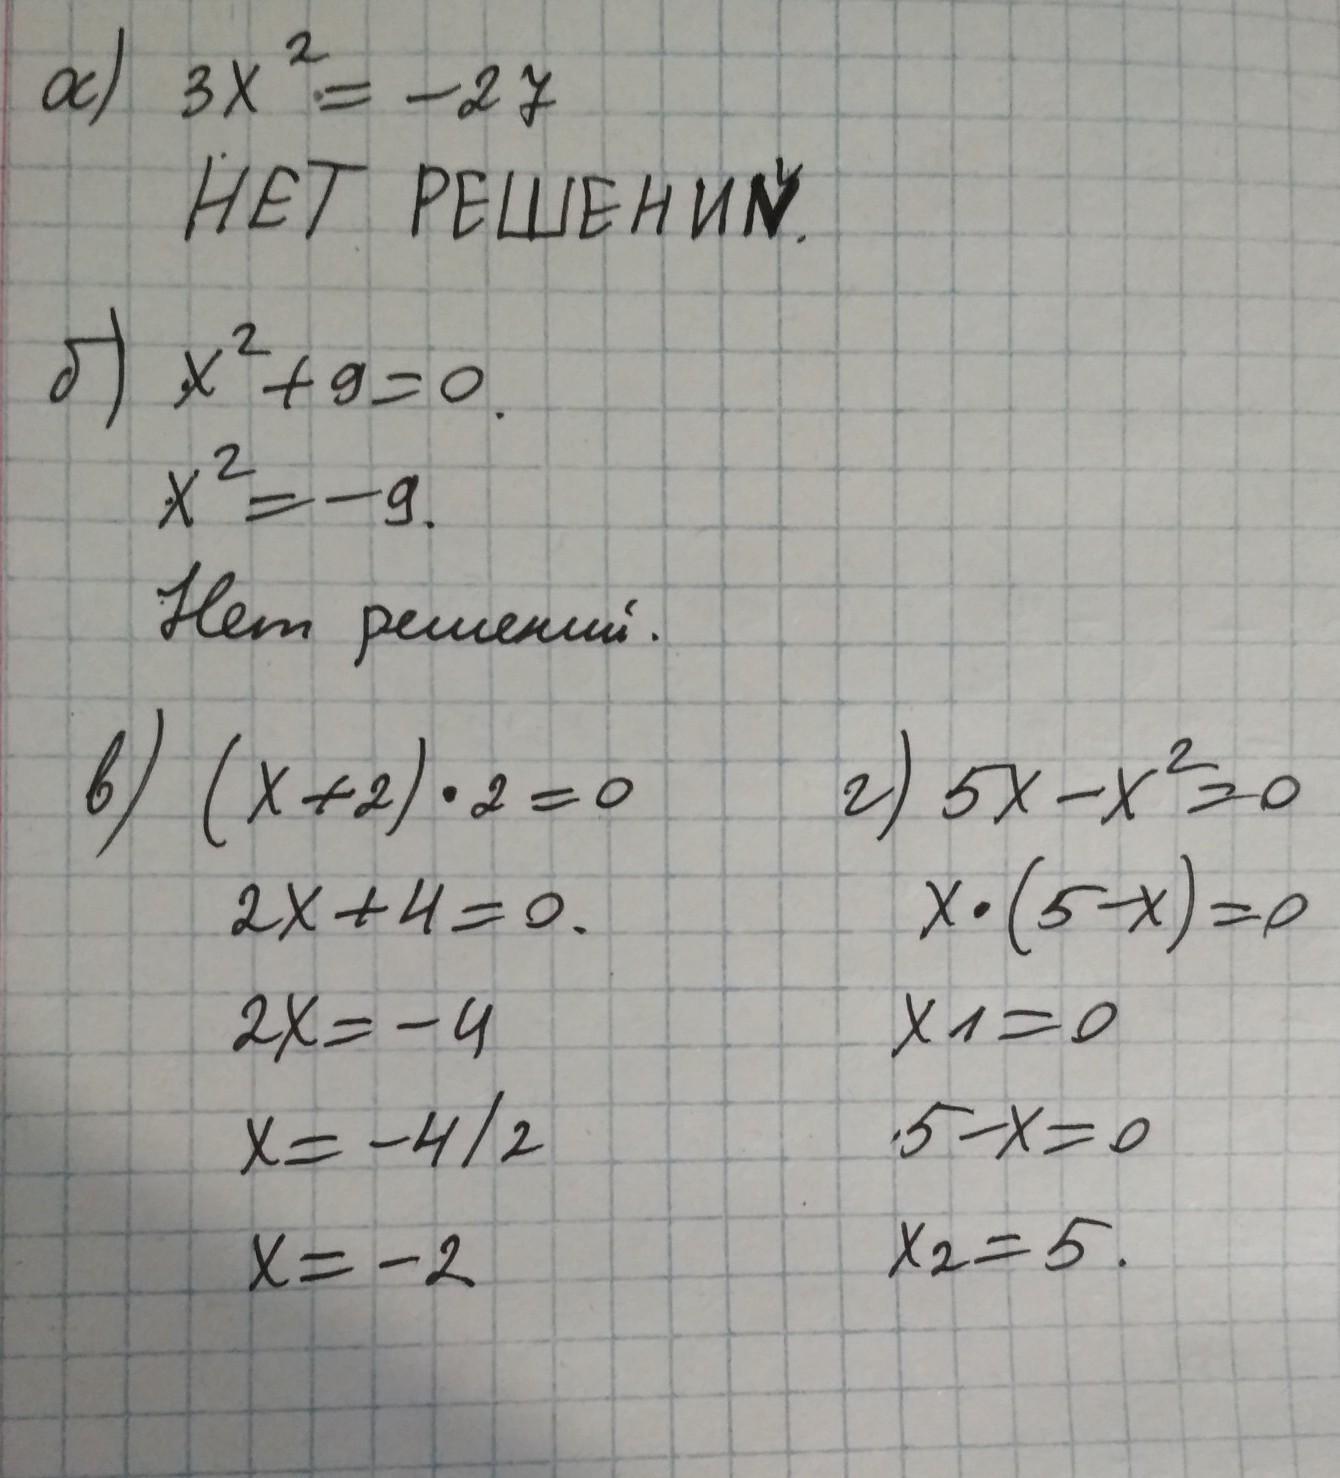 а) 3x² = -27
НЕТ РЕШЕНИЙ.
б) x² + 9 = 0.
x² = -9.
Нет решений.
в) (x + 2) · 2 = 0
2x + 4 = 0.
2x = -4
x = -4/2
x = -2
г) 5x - x² = 0
x · (5 - x) = 0
x1 = 0
5 - x = 0
x2 = 5.